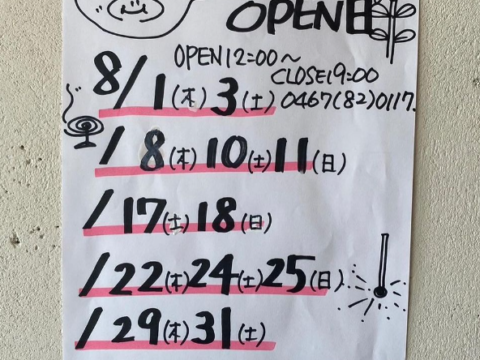 OPEN日
OPEN12=00～
CLOSE19=00
8/1(木)3(土) 0467(82)0117.
/8(木)10(土)11(日)
/17(土)18(日)
/22(木)24(土)25(日)
/29(木)31(土)